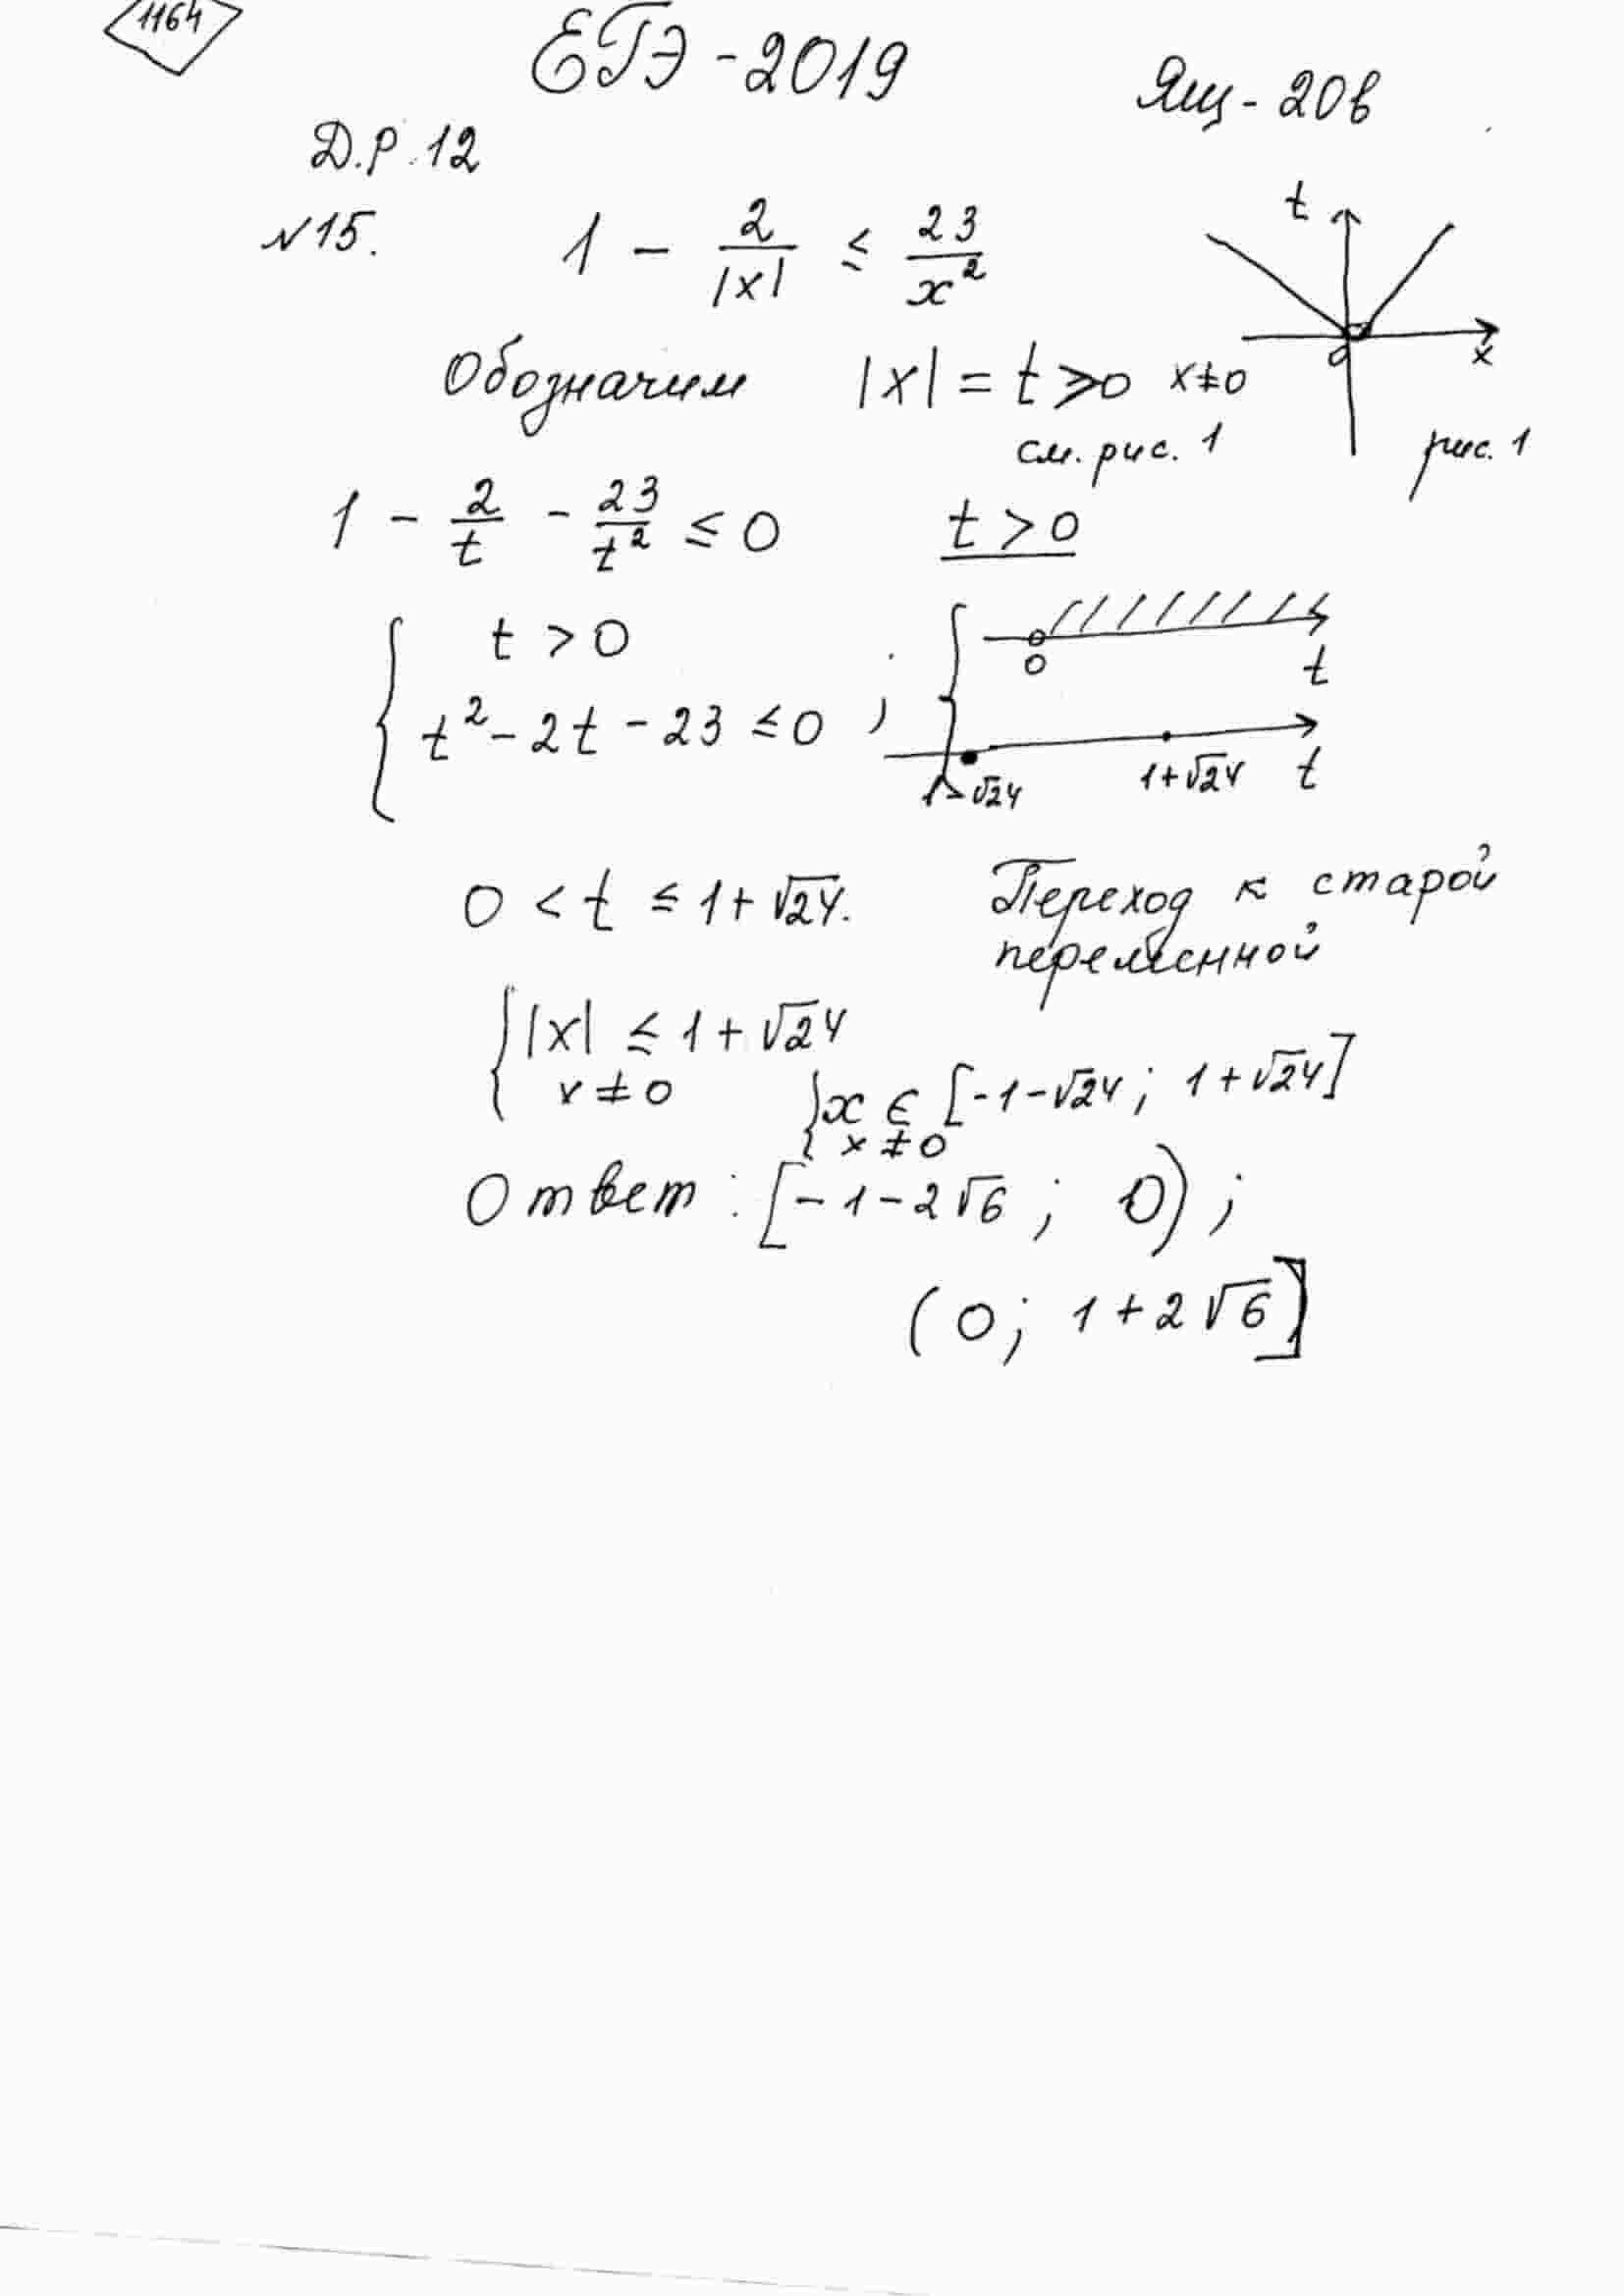 1164
ЕГЭ - 2019
Ящ - 20в
Д.Р. 12
№15. 1 - 2/|x| ≤ 23/x²
t
x
0
рис. 1
Обозначим |x| = t ≥ 0 x ≠ 0
см. рис. 1
1 - 2/t - 23/t² ≤ 0 t > 0
{ t > 0
t² - 2t - 23 ≤ 0 ;
{ 0 t
1-√24 1+√24 t
0 < t ≤ 1+√24. Переход к старой
переменной
{ |x| ≤ 1+√24
x ≠ 0
{ x ∈ [-1-√24; 1+√24]
x ≠ 0
Ответ: [-1-2√6; 0);
(0; 1+2√6]